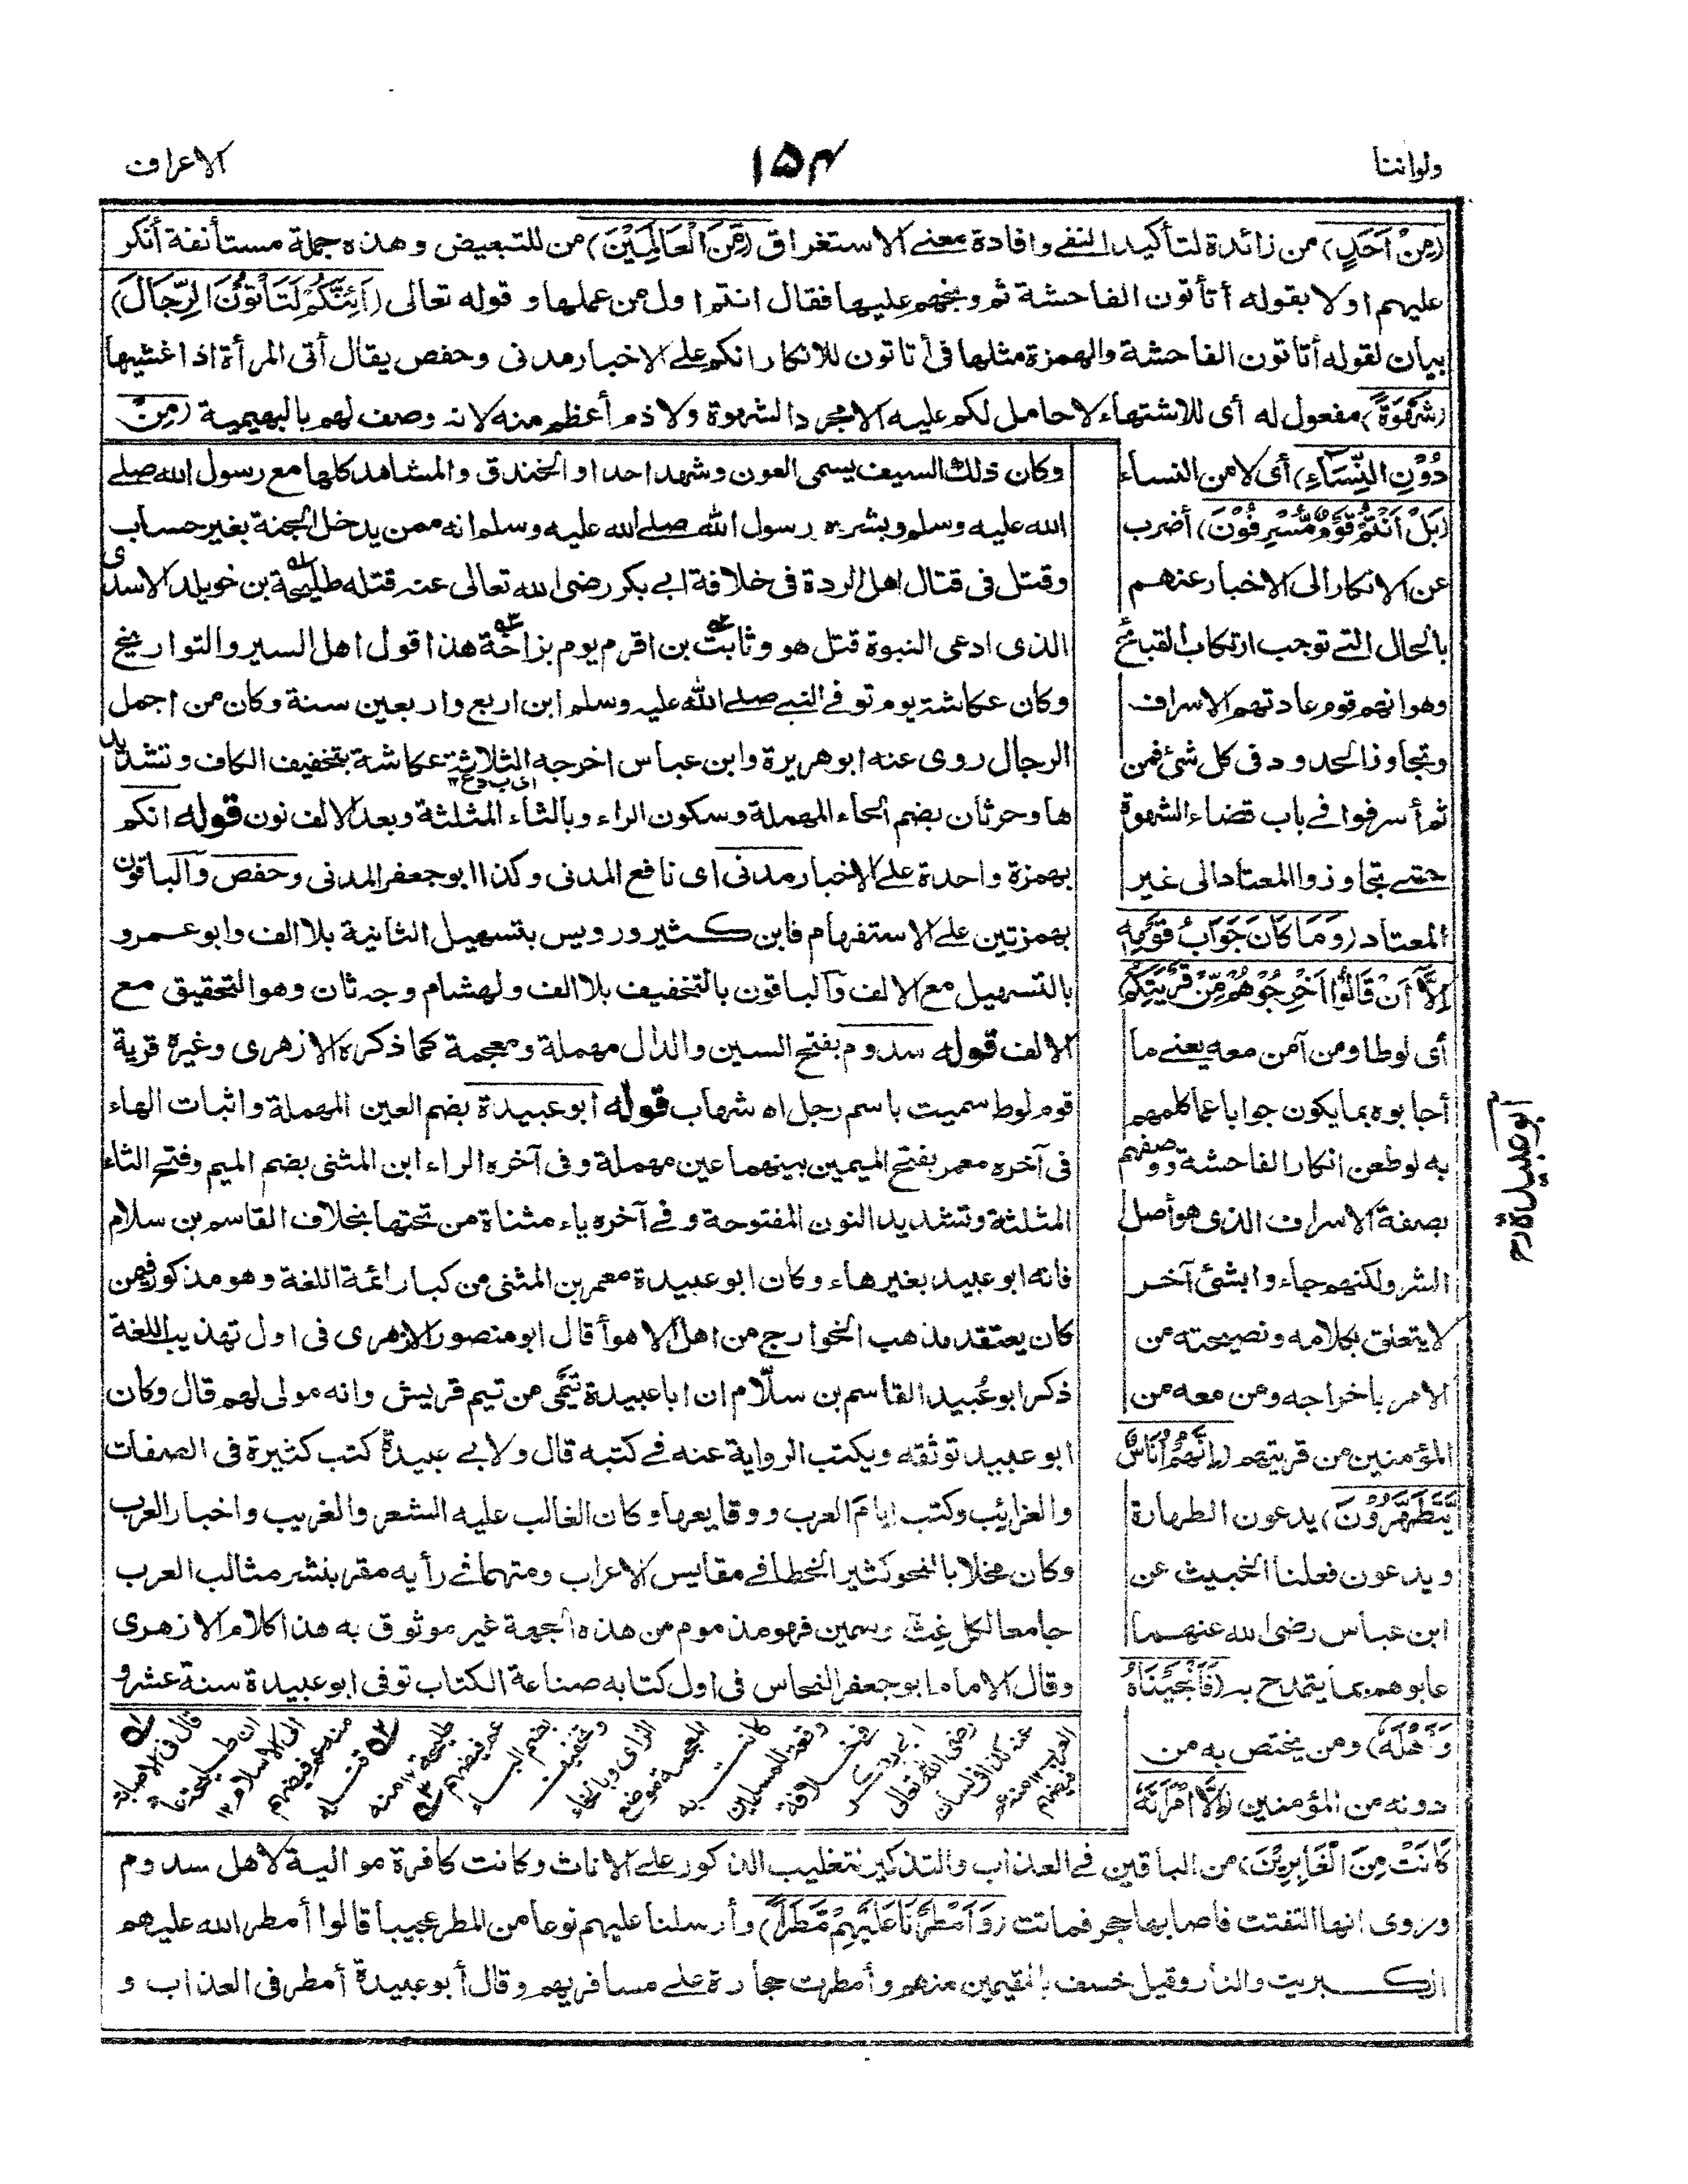 ولواننا
١٥٤
الاعراف
(مِنْ اَحَدٍ) من زائدة لتأكيد النفى وافادة معنى الاستغراق (مِّنَ الْعَالَمِيْنَ) من للتبعيض وهذه جملة مستأنفة أنكر
عليهم اولا بقوله أتأتون الفاحشة ثم وبخهم عليها فقال انتم اول من عملها و قوله تعالى (أَئِنَّكُمْ لَتَأْتُوْنَ الرِّجَالَ)
بيان لقوله أتأتون الفاحشة والهمزة مثلها فى أتاتون للانكار انكم على الاخبار مدنى وحفص يقال أتى المرأة اذا غشيها
(شَهْوَةً) مفعول له أى للاشتهاء لا حامل لكم عليه الا مجرد الشهوة ولا ذم أعظم منه لانه وصف لهم بالبهيمية (مِنْ
دُوْنِ النِّسَاءِ) أى لا من النساء
(بَلْ اَنْتُمْ قَوْمٌ مُّسْرِفُوْنَ) أضرب
عن الانكار الى الاخبار عنهم
بالحال التى توجب ارتكاب القبائح
وهوانهم قوم عادتهم الاسراف
وتجاوز الحدود فى كل شئ فمن
ثم أسرفوا فى باب قضاء الشهوة
حتى تجاوزوا المعتاد الى غير
المعتاد (وَمَا كَانَ جَوَابَ قَوْمِهٖ
اِلَّا اَنْ قَالُوْا اَخْرِجُوْهُمْ مِّنْ قَرْيَتِكُمْ
أى لوطا ومن آمن معه يعنى ما
أجابوه بما يكون جوابا عما كلمهم
به لوط عن انكار الفاحشة ووصفهم
بصفة الاسراف الذى هو أصل
الشر ولكنهم جاءوا بشئ آخر
لا يتعلق بكلامه ونصيحته من
الامر باخراجه ومن معه من
المؤمنين من قريتهم (اِنَّهُمْ اُنَاسٌ
يَّتَطَهَّرُوْنَ) يدعون الطهارة
ويدعون فعلنا الخبيث عن
ابن عباس رضى الله عنهما
عابوهم بما يتمدح به (فَاَنْجَيْنَاهُ
وَاَهْلَهٗ) ومن يختص به من
دونه من المؤمنين (اِلَّا امْرَأَتَهٗ
وكان ذلك السيف يسمى العون وشهد احدا و الخندق والمشاهد كلها مع رسول الله صلى
الله عليه وسلم وبشره رسول الله صلى الله عليه وسلم انه ممن يدخل الجنة بغير حساب
وقتل فى قتال اهل الردة فى خلافة ابى بكر رضى الله تعالى عنه قتله طليحة بن خويلد الاسدى
الذى ادعى النبوة قتل هو وثابت بن اقرم يوم بزاخة هذا قول اهل السير والتواريخ
وكان عكاشة يوم توفى النبى صلى الله عليه وسلم ابن اربع واربعين سنة وكان من اجمل
الرجال روى عنه ابوهريرة وابن عباس اخرجه الثلاثة عكاشة بتخفيف الكاف وتشديد
ها وحرثان بضم الحاء المهملة وسكون الراء وبالثاء المثلثة وبعد الالف نون قوله انكم
بهمزة واحدة على الاخبار مدنى اى نافع المدنى وكذا ابوجعفر المدنى وحفص والباقون
بهمزتين على الاستفهام فابن كثير ورويس بتسهيل الثانية بلا الف وابو عمرو
بالتسهيل مع الالف والباقون بالتخفيف بلا الف ولهشام وجه ثان وهو التحقيق مع
الالف قوله سدوم بفتح السين والدال مهملة ومعجمة كما ذكره الازهرى وغيره قرية
قوم لوط سميت باسم رجل اه شهاب قوله ابو عبيدة بضم العين المهملة واثبات الهاء
فى آخره معمر بفتح الميمين بينهما عين مهملة وفى آخره الراء ابن المثنى بضم الميم وفتح الثاء
المثلثة وتشديد النون المفتوحة وفى آخره ياء مثناة من تحتها بخلاف القاسم بن سلام
فانه ابوعبيد بغير هاء وكان ابو عبيدة معمر بن المثنى من كبار ائمة اللغة وهو مذكور فيمن
كان يعتقد مذهب الخوارج من اهل الاهوأ قال ابو منصور الازهرى فى اول تهذيب اللغة
ذكر ابو عُبيد القاسم بن سلّام ان ابا عبيدة تيمى من تيم قريش وانه مولى لهم قال وكان
ابو عبيد توثقه ويكتب الرواية عنه فى كتبه قال ولابى عبيدة كتب كثيرة فى الصفات
والغرائب وكتب ايام العرب ووقايعها وكان الغالب عليه الشعر والغريب واخبار العرب
وكان مخلا بالنحو كثير الخطا فى مقايس الاعراب ومتهما فى رأيه مقر بنشر مثالب العرب
جامعا لكل غث وسمين فهو مذموم من هذه الجهة غير موثوق به هذا كلام الازهرى
وقال الامام ابو جعفر النحاس فى اول كتابه صناعة الكتاب توفى ابو عبيدة سنة عشرو
كَانَتْ مِنَ الْغَابِرِيْنَ) من الباقين فى العذاب والتذكير لتغليب الذكور على الاناث وكانت كافرة موالية لاهل سدوم
وروى انها التفتت فاصابها حجر فماتت (وَاَمْطَرْنَا عَلَيْهِمْ مَّطَرًا) وأرسلنا عليهم نوعا من المطر عجيبا قالوا أمطر الله عليهم
الكبريت والنار وقيل خسف بالمقيمين منهم وأمطرت حجارة على مسافريهم وقال أبو عبيدة أمطر فى العذاب و